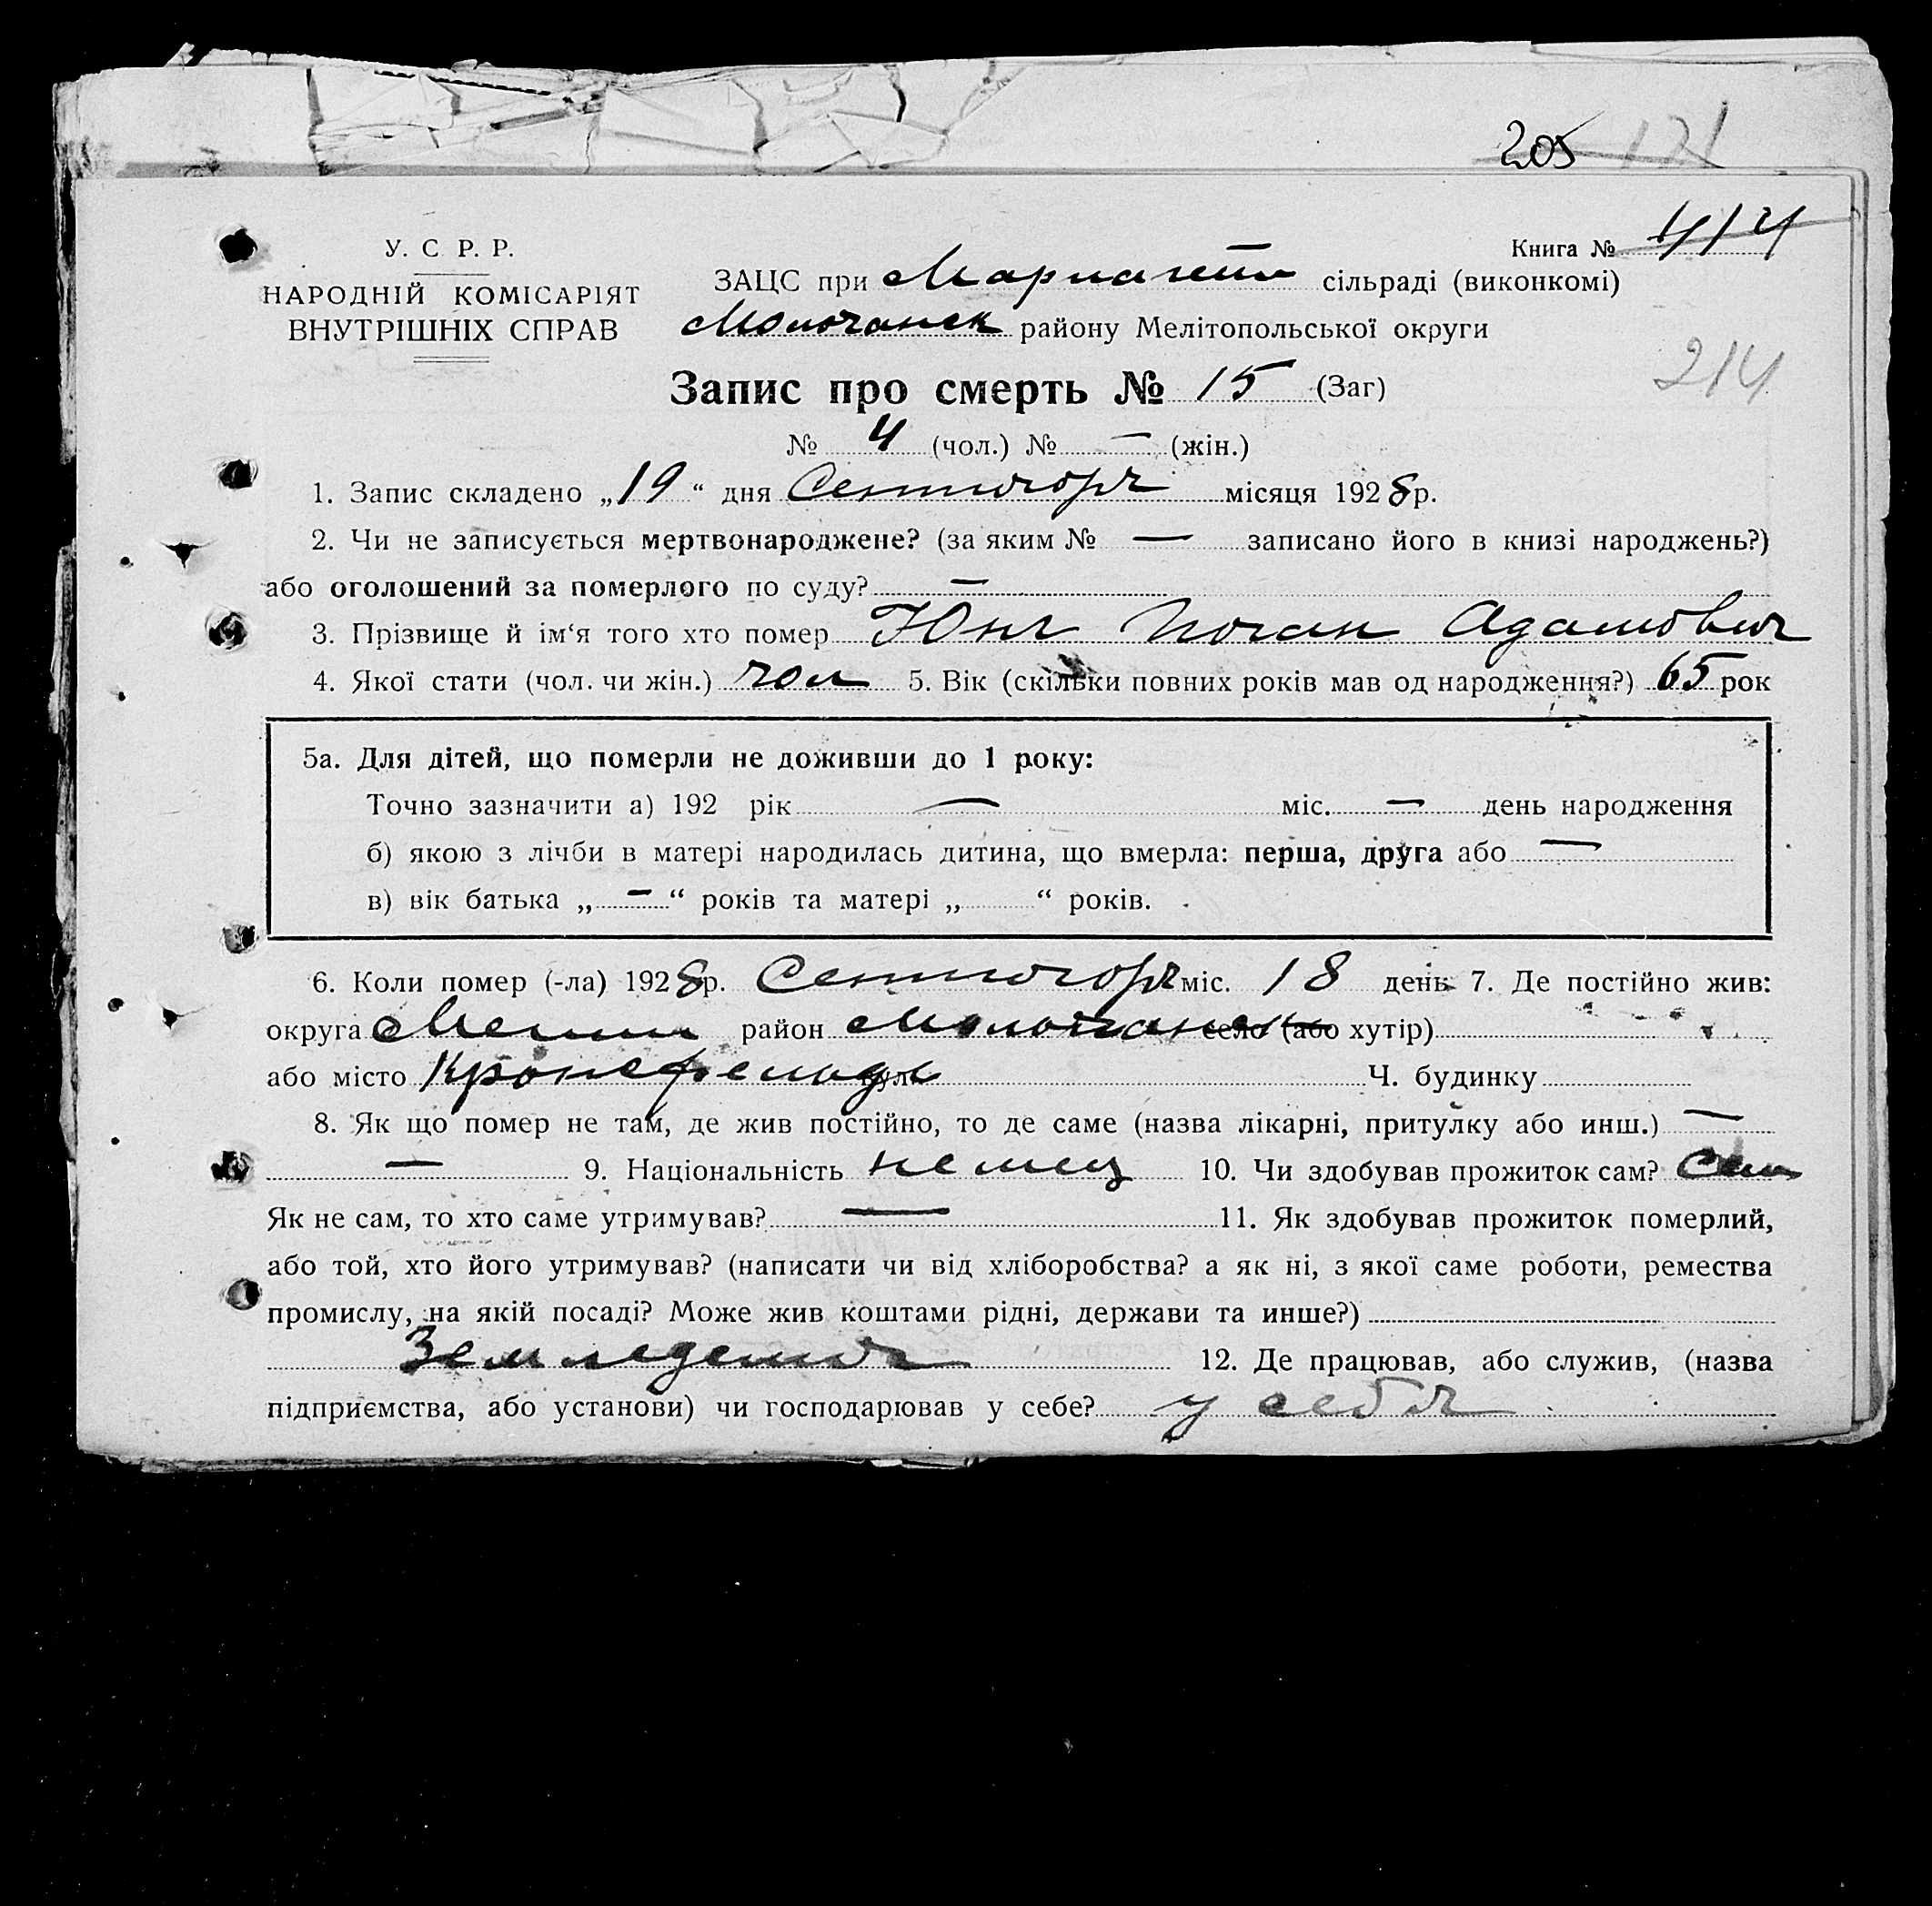 205 121
У. С. Р. Р.
Книга № 414
НАРОДНІЙ КОМІСАРІЯТ
ВНУТРІШНІХ СПРАВ
ЗАЦС при сільраді (виконкомі)
Молочанск району Мелітопольської округи
214
Запис про смерть № 15 (Заг)
№ 4 (чол.) № — (жін.)
1. Запис складено „19“ дня Сентября місяця 1928 р.
2. Чи не записується мертвонароджене? (за яким № — записано його в книзі народжень?)
або оголошений за померлого по суду? —
3. Прізвище й ім‘я того хто помер Юнг Иоган Адамович
4. Якої стати (чол. чи жін.) чол 5. Вік (скільки повних років мав од народження?) 65 рок
5а. Для дітей, що померли не доживши до 1 року:
Точно зазначити а) 192 рік — міс. — день народження
б) якою з лічби в матері народилась дитина, що вмерла: перша, друга або —
в) вік батька „ — “ років та матері „ “ років.
6. Коли помер (-ла) 1928 р. Сентября міс. 18 день 7. Де постійно жив:
округа Мелит район Молочанск село (або хутір)
або місто Кронсфельд вул. Ч. будинку
8. Як що помер не там, де жив постійно, то де саме (назва лікарні, притулку або инш.) —
— 9. Національність немец 10. Чи здобував прожиток сам? Сам
Як не сам, то хто саме утримував? — 11. Як здобував прожиток померлий,
або той, хто його утримував? (написати чи від хліборобства? а як ні, з якої саме роботи, ремества
промислу, на якій посаді? Може жив коштами рідні, держави та инше?)
12. Де працював, або служив, (назва
підприємства, або установи) чи господарював у себе? у себя